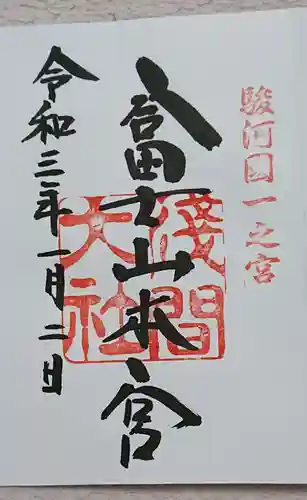 駿河國一之宮
富士山本宮
淺間
大社
令和三年一月二日